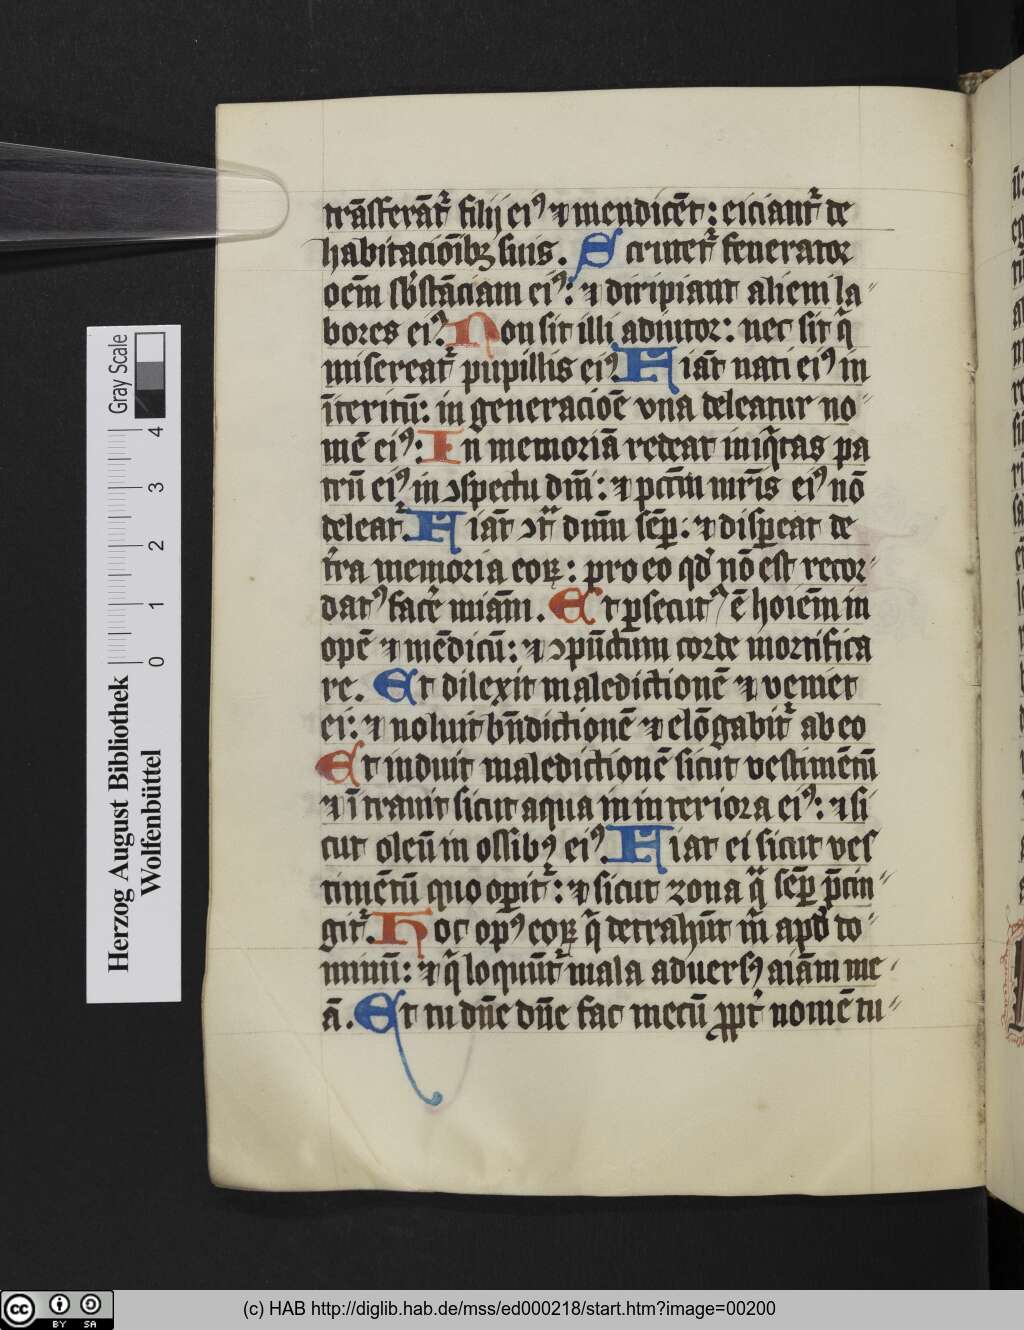 trāsferāt᷑ filij eiꝰ ⁊ mendicēt: eiciant᷑ de
habitacōībꝫ suis. Scrutet᷑ fenerator
oēm sb᷑stāciam eiꝰ: ⁊ diripiant alieni la
bores eiꝰ. Non sit illi adiutor: nec sit q̄
misereat᷑ pupillis eiꝰ. Fiāt nati eiꝰ in
īteritū: in generacioē vna deleatur no
mē eiꝰ: In memoriā redeat iniq̄tas pa
trū eiꝰ in ↄspectu dm̄i: ⁊ pctm̄ mr̄is eiꝰ nō
deleat᷑. Fiāt ↄt᷑ dnm̄ sēꝑ: ⁊ disꝑeat de
t᷑ra memoria eoꝝ: pro eo qd᷑ nō est recor
datꝰ facē miām. Et ꝑsecutꝰ ē hoiēm in
opē ⁊ mēdicū: ⁊ ↄpūctum corde mortifica
re. Et dilexit maledictionē ⁊ veniet
ei: ⁊ noluit bn̄dictionē ⁊ elōgabit᷑ ab eo
Et induit maledictionē sicut vestimētū
⁊ ītrauit sicut aqua in interiora eiꝰ: ⁊ si
cut oleū in ossibꝰ eiꝰ. Fiat ei sicut ves
timētū quo oꝑit᷑: ⁊ sicut zona qᷓ sēꝑ p̄cin
git᷑. Hoc opꝰ eoꝝ q̄ detrahūt m̄ apd᷑ do
minū: ⁊ q̄ loquūt᷑ mala aduersꝰ aiām me
ā. Et tu dn̄e dn̄e fac mecū ꝓpt᷑ nomē tu
Gray Scale
0 1 2 3 4
Herzog August Bibliothek
Wolfenbüttel
cc BY SA
(c) HAB http://diglib.hab.de/mss/ed000218/start.htm?image=00200